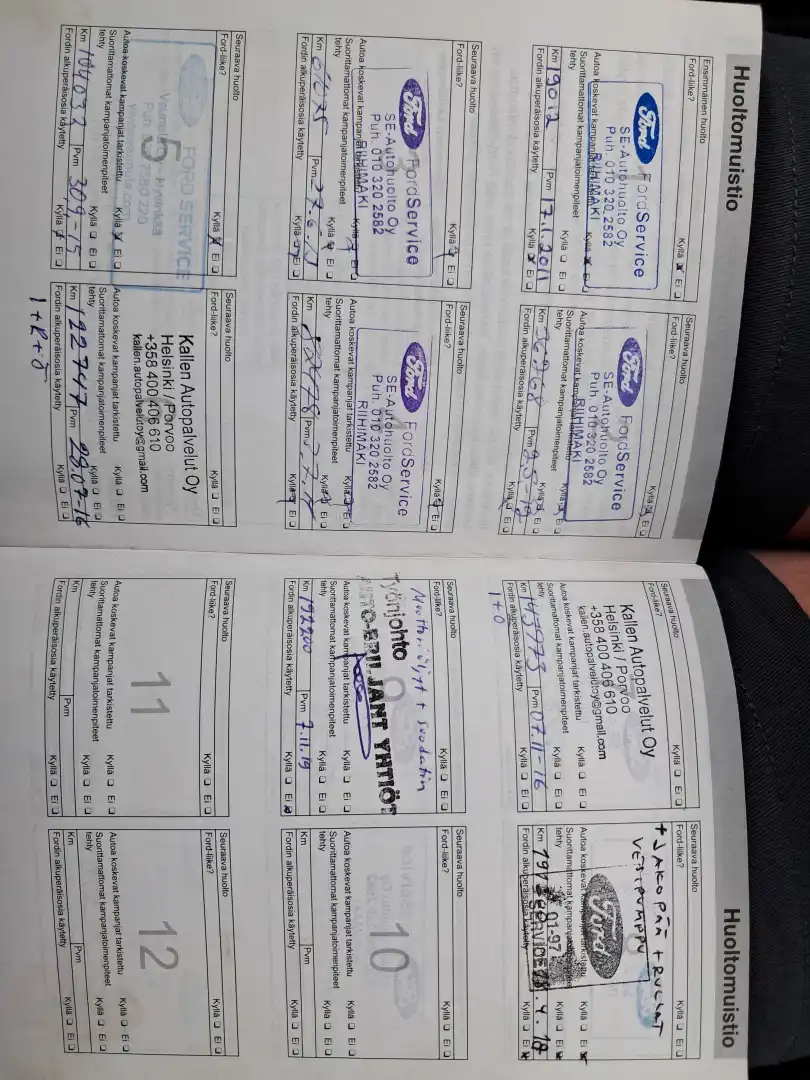 Huoltomuistio
Ensimmäinen huolto
Ford-liike? Kyllä Ei
Ford FordService
SE-Autohuolto Oy
Puh. 010 320 2582
RIIHIMÄKI
Autoa koskevat kampanjat tarkistettu Kyllä Ei
Suorittamattomat kampanjatoimenpiteet
tehty Kyllä Ei
Km 19012 Pvm 17.1.2011
Fordin alkuperäisosia käytetty Kyllä Ei
Seuraava huolto
Ford-liike? Kyllä Ei
Ford FordService
SE-Autohuolto Oy
Puh. 010 320 2582
RIIHIMÄKI
Autoa koskevat kampanjat tarkistettu Kyllä Ei
Suorittamattomat kampanjatoimenpiteet
tehty Kyllä Ei
Km Pvm
Fordin alkuperäisosia käytetty Kyllä Ei
Seuraava huolto
Ford-liike? Kyllä Ei
Ford FordService
SE-Autohuolto Oy
Puh. 010 320 2582
RIIHIMÄKI
Autoa koskevat kampanjat tarkistettu Kyllä Ei
Suorittamattomat kampanjatoimenpiteet
tehty Kyllä Ei
Km Pvm
Fordin alkuperäisosia käytetty Kyllä Ei
Seuraava huolto
Ford-liike? Kyllä Ei
Ford FordService
SE-Autohuolto Oy
Puh. 010 320 2582
RIIHIMÄKI
Autoa koskevat kampanjat tarkistettu Kyllä Ei
Suorittamattomat kampanjatoimenpiteet
tehty Kyllä Ei
Km Pvm
Fordin alkuperäisosia käytetty Kyllä Ei
Seuraava huolto
Ford-liike? Kyllä Ei
FORD SERVICE
5
Autoa koskevat kampanjat tarkistettu Kyllä Ei
Suorittamattomat kampanjatoimenpiteet
tehty Kyllä Ei
Km 104032 Pvm 309-15
Fordin alkuperäisosia käytetty Kyllä Ei
Seuraava huolto
Ford-liike? Kyllä Ei
Kallen Autopalvelut Oy
Helsinki / Porvoo
+358 400 406 610
kallen.autopalvelutoy@gmail.com
Autoa koskevat kampanjat tarkistettu Kyllä Ei
Suorittamattomat kampanjatoimenpiteet
tehty Kyllä Ei
Km 122747 Pvm 28.07-16
Fordin alkuperäisosia käytetty Kyllä Ei
Huoltomuistio
Seuraava huolto
Ford-liike? Kyllä Ei
Kallen Autopalvelut Oy
Helsinki / Porvoo
+358 400 406 610
kallen.autopalvelutoy@gmail.com
Autoa koskevat kampanjat tarkistettu Kyllä Ei
Suorittamattomat kampanjatoimenpiteet
tehty Kyllä Ei
Km 143973 Pvm 07.11-16
Fordin alkuperäisosia käytetty Kyllä Ei
Seuraava huolto
Ford-liike? Kyllä Ei
+ JAKOPÄÄ +
VESIPUMPPU
Ford
Autoa koskevat kampanjat tarkistettu Kyllä Ei
Suorittamattomat kampanjatoimenpiteet
tehty Kyllä Ei
01-97
SERVICE
Km
Fordin alkuperäisosia käytetty Kyllä Ei
Seuraava huolto
Ford-liike? Kyllä Ei
Moottoriöljyt + suodatin
9
Työnjohto
AUTO-BRILJANT YHTIÖT
Autoa koskevat kampanjat tarkistettu Kyllä Ei
Suorittamattomat kampanjatoimenpiteet
tehty Kyllä Ei
Km 192200 Pvm 7.11.19
Fordin alkuperäisosia käytetty Kyllä Ei
Seuraava huolto
Ford-liike? Kyllä Ei
10
Autoa koskevat kampanjat tarkistettu Kyllä Ei
Suorittamattomat kampanjatoimenpiteet
tehty Kyllä Ei
Km Pvm
Fordin alkuperäisosia käytetty Kyllä Ei
Seuraava huolto
Ford-liike? Kyllä Ei
11
Autoa koskevat kampanjat tarkistettu Kyllä Ei
Suorittamattomat kampanjatoimenpiteet
tehty Kyllä Ei
Km Pvm
Fordin alkuperäisosia käytetty Kyllä Ei
Seuraava huolto
Ford-liike? Kyllä Ei
12
Autoa koskevat kampanjat tarkistettu Kyllä Ei
Suorittamattomat kampanjatoimenpiteet
tehty Kyllä Ei
Km Pvm
Fordin alkuperäisosia käytetty Kyllä Ei